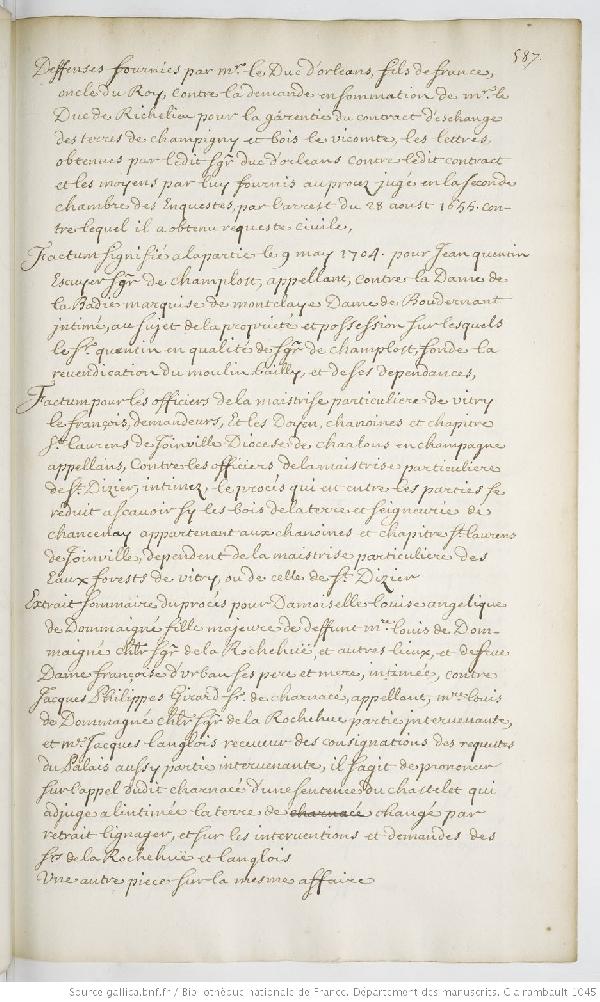 587.
Deffenses fournies par mr. le Duc d'orleans, fils de france,
oncle du Roy, contre la demande en sommation de mr. le
Duc de Richelieu pour la garentie du contract d'eschange
des terres de champigny et bois le vicomte, les lettres
obtenues par ledit sgr. duc d'orleans contre ledit contract
et les moyens par luy fournis au procez jugé en la seconde
chambre des Enquestes, par l'arrest du 28 aoust 1655. con-
tre lequel il a obtenu requeste civile,
Factum signifié a la partie le 9 may 1704. pour Jean quentin
Escuyer sgr. de champlost, appellant, contre la Dame de
la Badie marquise de montclaye Dame de Boudernant
intimé, au sujet de la proprieté et possession sur lesquels
le sr. quentin en qualité de sgr. de champlost, fonde la
revendication du moulin bailly et de ses dependances,
Factum pour les officiers de la maistrise particuliere de vitry
le françois, demandeurs, Et les Doyen, chanoines et chapitre
St. Laurens de Joinville Diocese de chaalons en champagne
appellans, Contre les officiers de la maistrise particuliere
de St. Dizier, intimez. le procés qui en entre les parties se
reduit ascavoir sy les bois de la terre et seigneurie de
chancenay appartenant aux chanoines et chapitre St. Laurens
de Joinville, dependent de la maistrise particuliere des
Eaux forests de vitry, ou de celle de St. Dizier
Extrait sommaire du procés pour Damoiselle louise angelique
de Dommaigné fille majeure de deffunt mre. louis de Dom-
maigné chlr. sgr. de la Rochehuë, et autres lieux, et de feue
Dame françoise d'urban ses pere et mere, intimée, contre
Jacques Philippes Girard sr. de charnacé, appellant, mre. louis
de Dommagné chlr. sgr. de la Rochehue partie intervenante,
et mr. Jacques langlois receveur des consignations des requetes
du Palais aussy partie intervenante, il s'agit de prononcer
sur l'appel dudit charnacé d'une sentence du chastelet qui
adjuge a l'intimée la terre de charnacé changé par
retrait lignager, et sur les interventions et demandes des
srs. de la Rochehuë et langlois
Une autre piece sur la mesme affaire
Source gallica.bnf.fr / Bibliothèque nationale de France. Département des manuscrits. Clairambault 1045